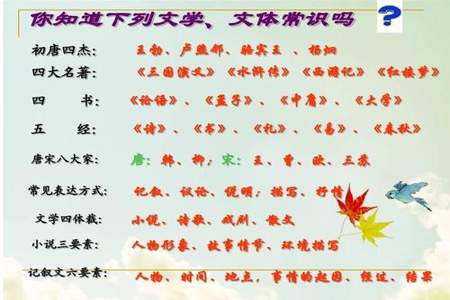 你知道下列文学、文体常识吗 ?
初唐四杰: 王勃、卢照邻、骆宾王 、杨炯
四大名著: 《三国演义》《水浒传》《西游记》《红楼梦》
四 书: 《论语》、《孟子》、《中庸》、《大学》
五 经: 《诗》、《书》、《礼》、《易》、《春秋》
唐宋八大家: 唐:韩、柳;宋:王、曾、欧、三苏
常见表达方式: 记叙、议论、说明;描写、抒情
文学四体裁: 小说、诗歌、戏剧、散文
小说三要素: 人物形象、故事情节、环境描写
记叙文六要素: 人物、时间、地点,事情的起因、经过、结果